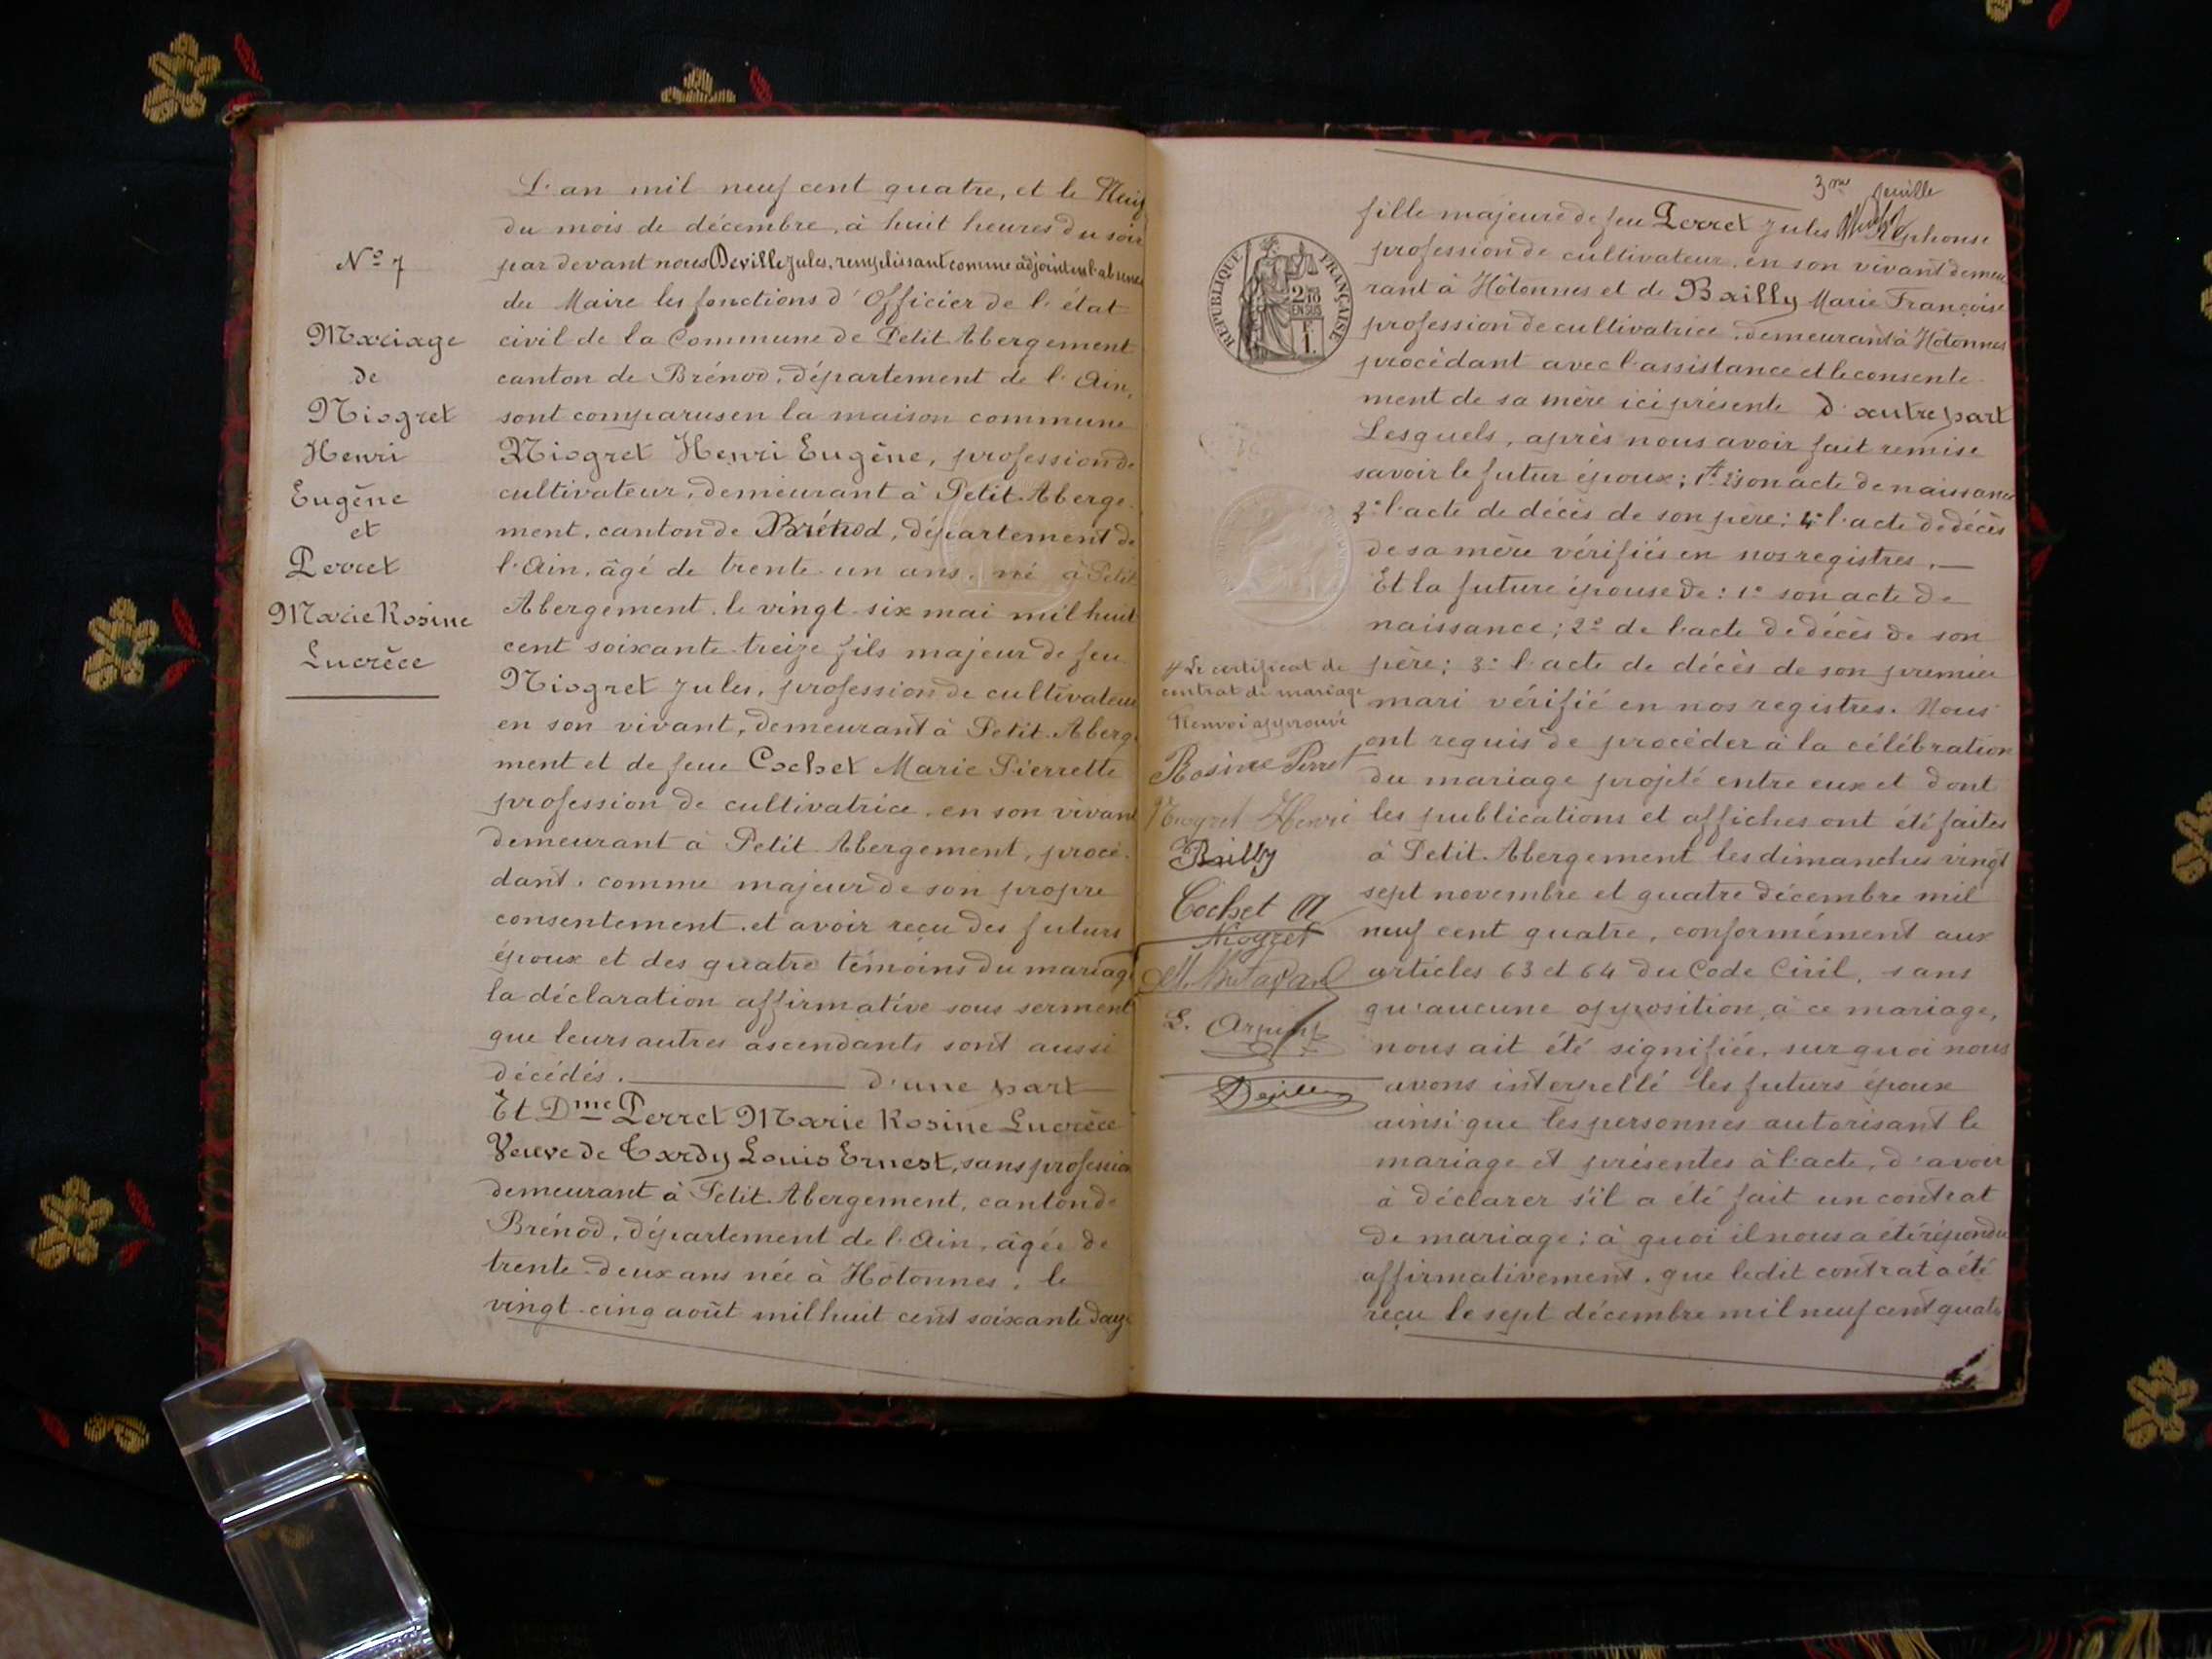 L'an mil neuf cent quatre, et le Neuf
du mois de décembre, à huit heures du soir
par devant nous Deville Jules, remplissant comme adjoint en l'absence
du Maire les fonctions d'Officier de l'état
civil de la Commune de Petit Abergement
canton de Brénod, département de l'Ain,
sont comparus en la maison commune
Niogret Henri Eugène, profession de
cultivateur, demeurant à Petit Aberge-
ment, canton de Brénod, département de
l'Ain, âgé de trente-un ans, né à Petit
Abergement, le vingt-six mai mil huit
cent soixante-treize fils majeur de feu
Niogret Jules, profession de cultivateur
en son vivant, demeurant à Petit-Aberge
ment et de feue Cochet Marie Pierrette
profession de cultivatrice, en son vivant
demeurant à Petit Abergement, procé-
dant, comme majeur de son propre
consentement, et avoir reçu des futurs
époux et des quatre témoins du mariage
la déclaration affirmative sous serment
que leurs autres ascendants sont aussi
décédés. d'une part
Et Dme Perret Marie Rosine Lucrèce
Veuve de Tardy Louis Ernest, sans profession
demeurant à Petit-Abergement, canton de
Brénod, département de l'Ain, âgée de
trente-deux ans née à Hotonnes, le
vingt-cinq août mil huit cent soixante douze
No 7
Mariage
de
Niogret
Henri
Eugène
et
Perret
Marie Rosine
Lucrèce
3me feuille
fille majeure de feu Perret Jules Alphonse
profession de cultivateur, en son vivant demeu
rant à Hotonnes et de Bailly Marie Françoise
profession de cultivatrice, demeurant à Hotonnes
procédant avec l'assistance et le consente-
ment de sa mère ici présente d'autre part
Lesquels, après nous avoir fait remise
savoir le futur époux; 1° 2° son acte de naissance
3° l'acte de décès de son père; 4° l'acte de décès
de sa mère vérifiés en nos registres.
Et la future épouse de: 1° son acte de
naissance; 2° de l'acte de décès de son
père; 3° l'acte de décès de son premier
mari vérifié en nos registres. Nous
ont requis de procéder à la célébration
du mariage projeté entre eux et dont
les publications et affiches ont été faites
à Petit-Abergement les dimanches vingt
sept novembre et quatre décembre mil
neuf cent quatre, conformément aux
articles 63 et 64 du Code Civil, sans
qu'aucune opposition, à ce mariage,
nous ait été signifiée, sur quoi nous
avons interpellé les futurs époux
ainsi que les personnes autorisant le
mariage et présentes à l'acte, d'avoir
à déclarer s'il a été fait un contrat
de mariage; à quoi il nous a été répondu
affirmativement, que ledit contrat a été
reçu le sept décembre mil neuf cent quatre
RÉPUBLIQUE FRANÇAISE
2/10
EN SUS
F.
1.
Le certificat de
contrat de mariage
Renvoi approuvé
Rosine Perret
Niogret Henri
Bailly
Cochet
Niogret
Deville